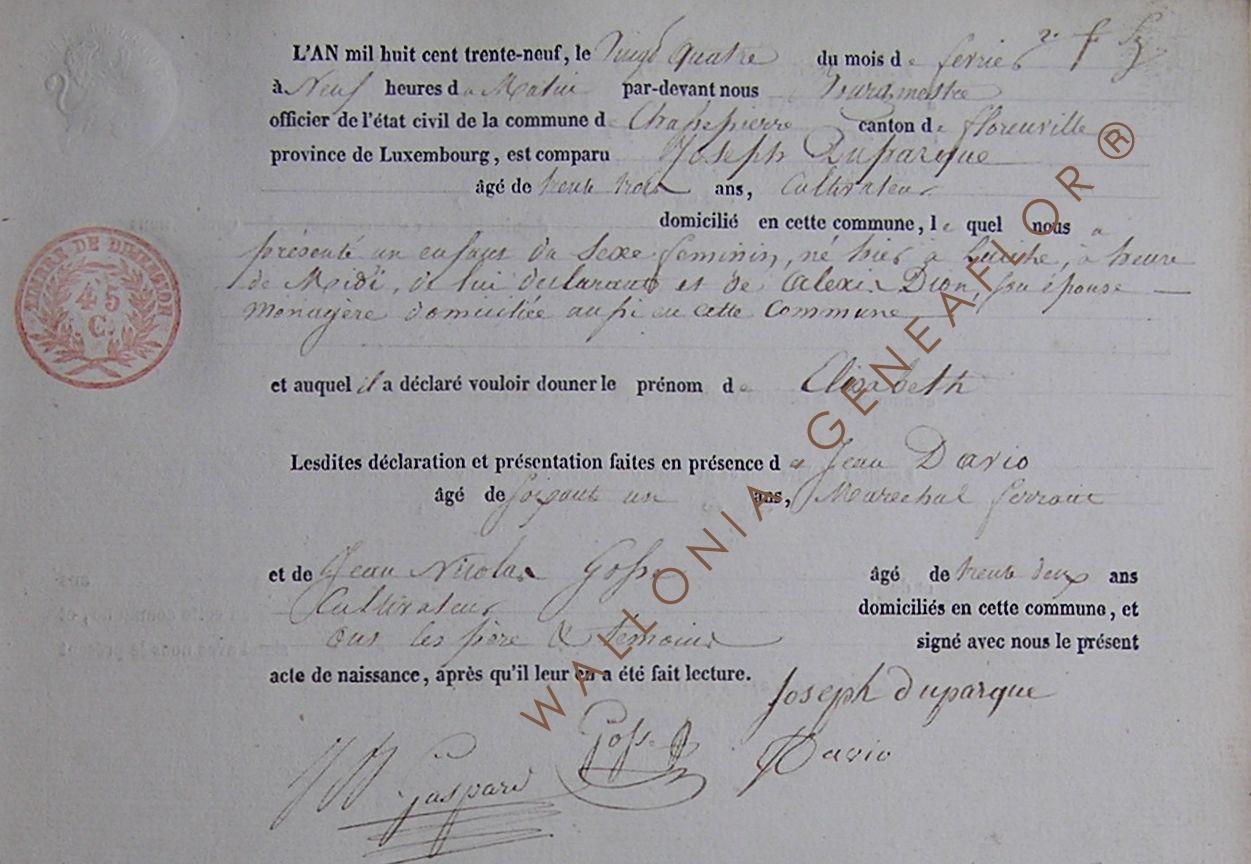 L'AN mil huit cent trente-neuf, le vingt quatre du mois de fevrier
à Neuf heures du Matin par-devant nous Bourgmestre
officier de l'état civil de la commune de Chassepierre canton de florenville
province de Luxembourg, est comparu Joseph Duparque
âgé de trente trois ans, Cultivateur
domicilié en cette commune, le quel nous a
présenté un enfant du Sexe feminin, né hier à Laiche, à heure
de Midi, de lui declarant et de Alexis Dion son épouse
Menagère domiciliée aussi en cette Commune
et auquel il a déclaré vouloir donner le prénom de Elisabeth
Lesdites déclaration et présentation faites en présence de Jean Davio
âgé de soixante un ans, Marechal ferrant
et de Jean Nicolas Gosse âgé de trente deux ans
Cultivateur domiciliés en cette commune, et
ont les père & temoins signé avec nous le présent
acte de naissance, après qu'il leur en a été fait lecture.
Joseph duparque
Gaspard Gosse Davio
TIMBRE DE DIMENSION
45
C.
WALLONIA-GENEAFLOR ®